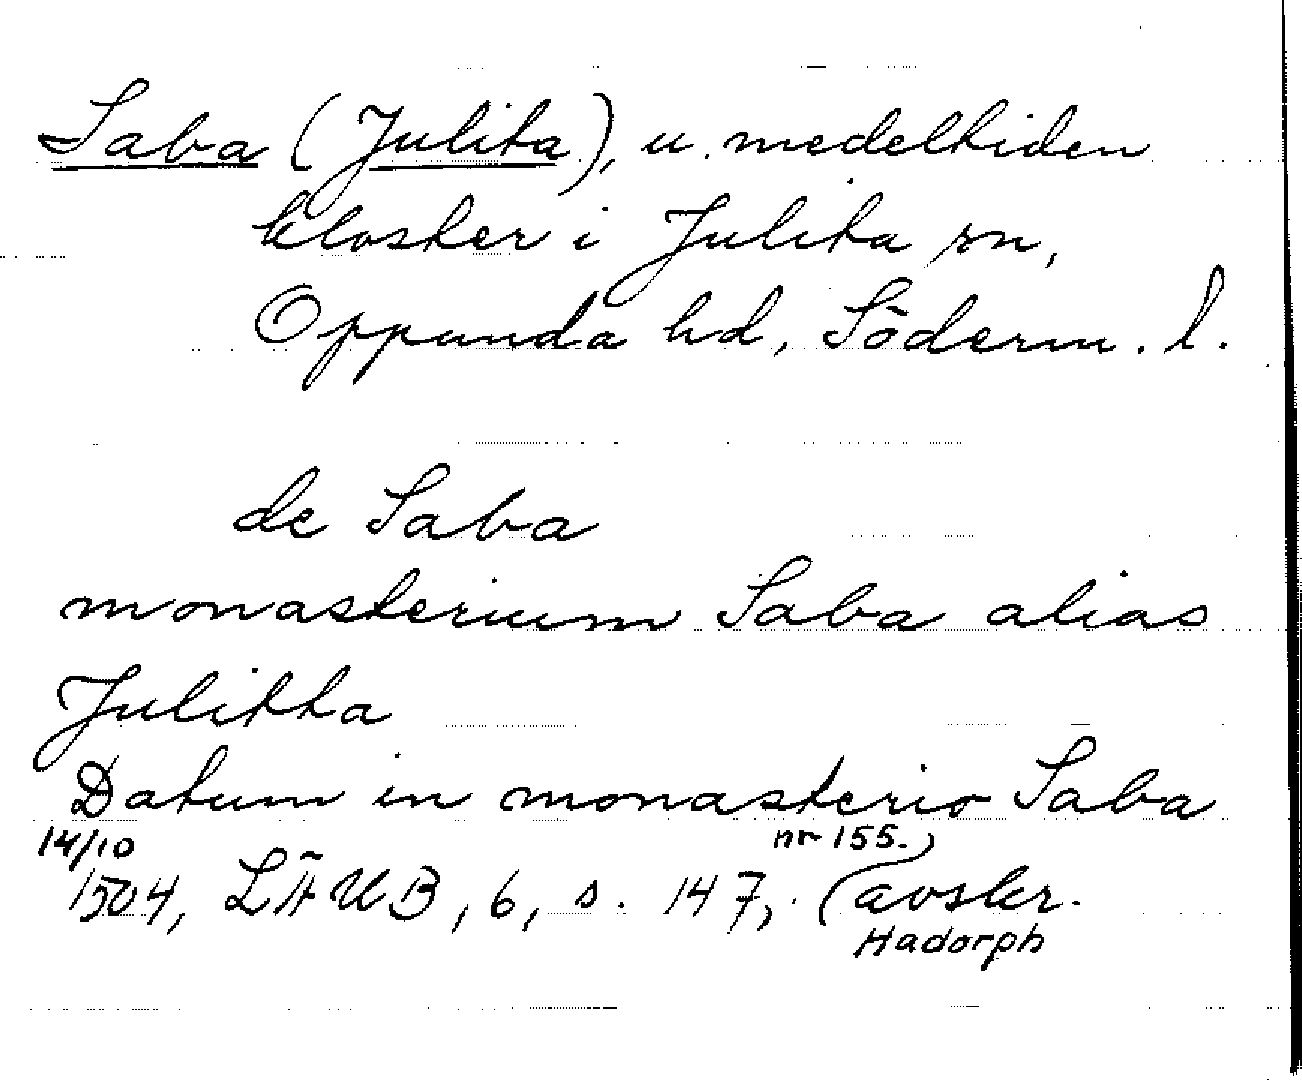 Saba (Julita), u. medeltiden
kloster i Julita sn,
Oppunda hd, Söderm. l.
de Saba
monasterium Saba alias
Julitta
Datum in monasterio Saba
14/10 nr 155.
1504, LÄUB, 6, s. 147, (avskr.
Hadorph